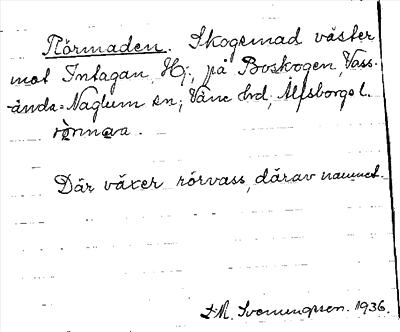 Rörmaden. Skogsmad väster
mot Intagan, Hj:, på Boskogen, Vass-
ända-Naglum sn; Väne hrd, Älfsborgs l.
Där växer rörvass, därav namnet.
1936.